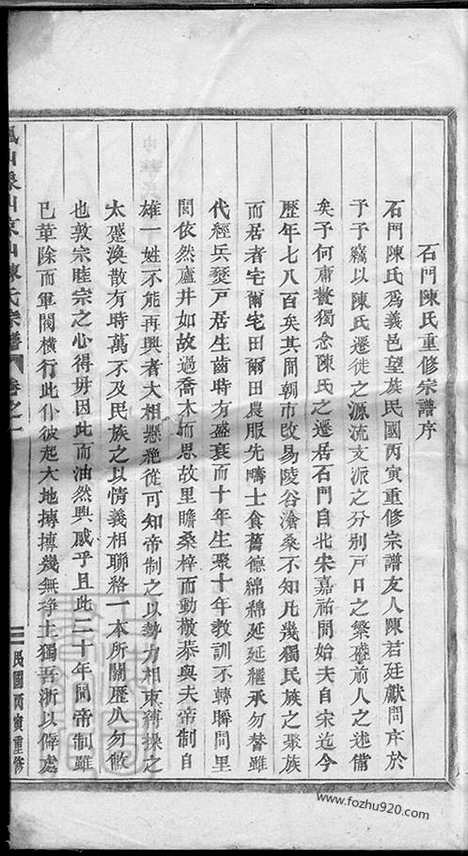 石門陳氏重修宗譜序
石門陳氏爲義邑望族民國丙寅重修宗譜友人陳君廷獻問序於
予予竊以陳氏遷徙之源流支派之分别戸日之繁礎前人之述備
矣予何庸贅獨念陳氏之遷居石門自北宋嘉祐間始夫自宋迄今
歷年七八百矣其間朝市改易陵谷滄桑不知凡幾獨民族之聚族
而居者宅爾宅田爾田農服先疇士食舊德綿綿延延繼承勿替雖
代經兵燹戸居生齒時有盛衰而十年生聚十年教訓不轉瞬間里
閭依然廬井如故過喬木而思故里瞻桑梓而動敬恭與夫帝制自
雄一姓不能再興者大相懸絶從可知帝制之以勢力相束縛操之
太蹙渙散有時萬不及民族之以情義相聯絡一本所關歷久勿敝
也敦宗睦宗之心得毋因此而油然興感乎且此二十年間帝制雖
已革除而軍閥横行此仆彼起大地摶摶幾無淨土獨吾浙以僻處
陳氏宗譜
卷之一
民國丙寅重修
www.fozhu920.com